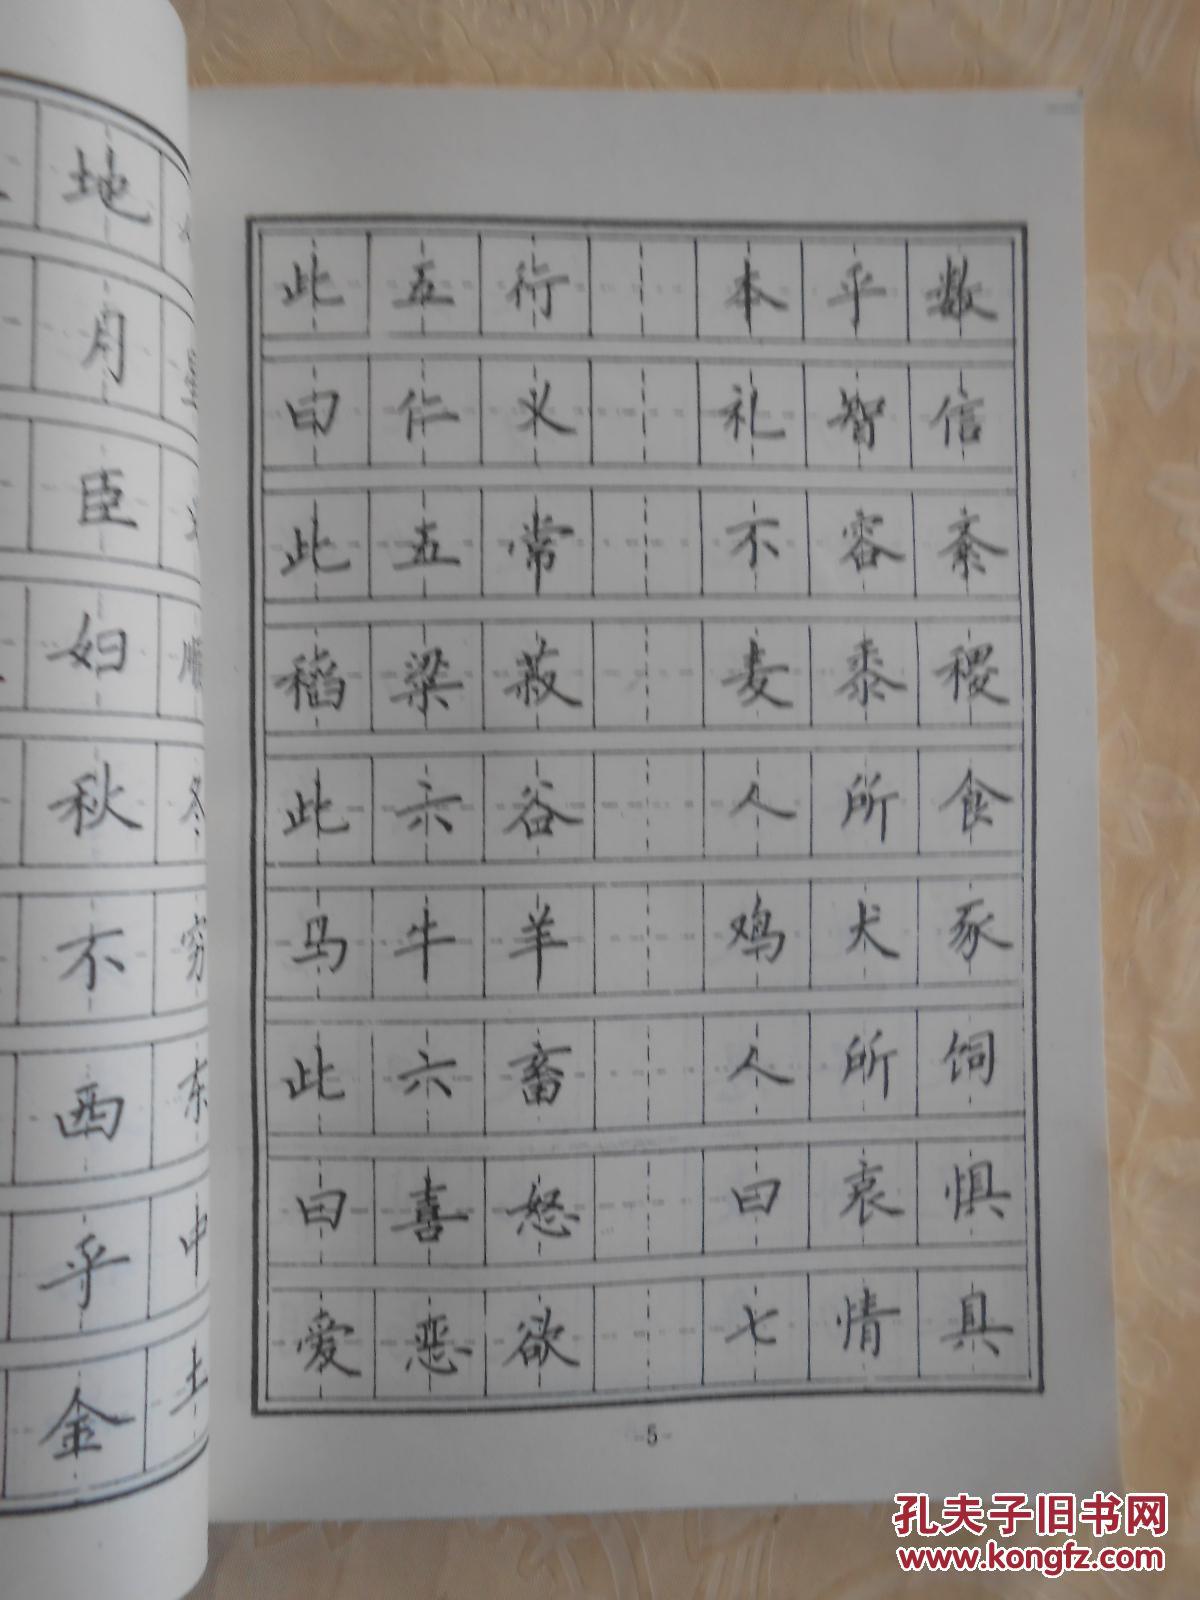 地
月
臣
妇 顺
秋 冬
不 穷
西 东
乎 中
金 土
此五行 本乎数
曰仁义 礼智信
此五常 不容紊
稻粱菽 麦黍稷
此六谷 人所食
马牛羊 鸡犬豕
此六畜 人所饲
曰喜怒 曰哀惧
爱恶欲 七情具
-5-
孔夫子旧书网
www.kongfz.com